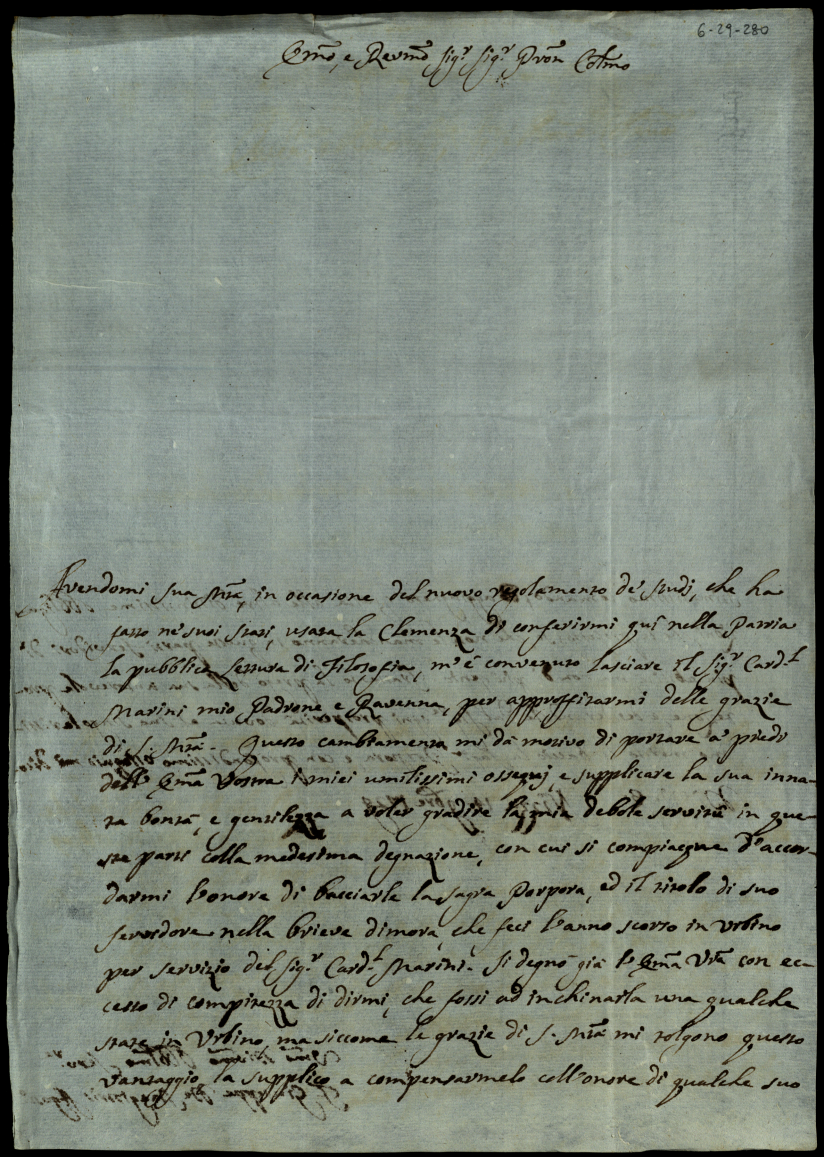 6-29-280
Emõ, e Revmõ Sigr. Sigr. Pron Colmo
Avendomi Sua Sttà, in occasione del nuovo regolamento de' Studj, che ha
fatto ne' suoi Stati, usata la Clemenza di conferirmi quì nella Patria
la pubblica Lettura di Filosofia, m'è convenuto lasciare il Sigr. Cardl.
Marini mio Padrone e Ravenna, per approffitarmi delle grazie
di S. Sttà. Questo cambiamento mi dà motivo di portare a' piedi
dell'Emã Vostra i miei umilissimi ossequj, e supplicare la sua inna-
ta bontà, e gentilezza a voler gradire la mia debole servitù in que-
ste parti colla medesima degnazione, con cui si compiacque d'accor-
darmi l'onore di bacciarle la Sagra Porpora, ed il titolo di suo
servidore nella brieve dimora, che feci l'anno scorso in Urbino
per servizio del Sigr. Cardl. Marini. Si degnò già l'Emã Vrã con ec-
cesso di compitezza di dirmi, che fossi ad inchinarla una qualche
state in Urbino, ma siccome le grazie di S. Sttà mi tolgono questo
vantaggio, la supplico a compensarmelo coll'onore di qualche suo